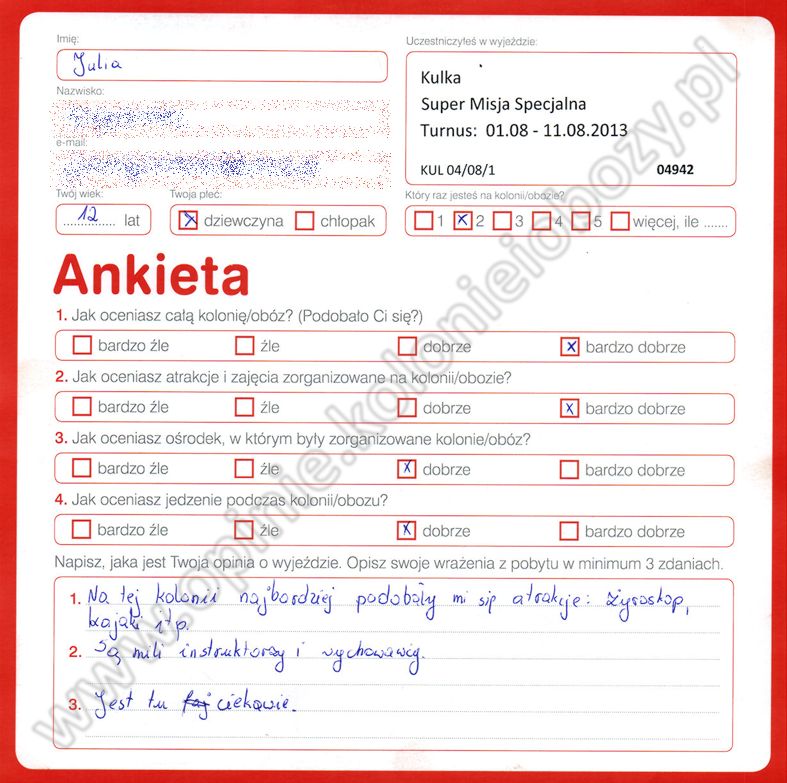 Imię:
Julia
Uczestniczyłeś w wyjeździe:
Kulka
Super Misja Specjalna
Turnus: 01.08 - 11.08.2013
KUL 04/08/1 04942
Nazwisko:
e-mail:
Twój wiek: Twoja płeć: Który raz jesteś na kolonii/obozie?
12 lat dziewczyna chłopak 1 2 3 4 5 więcej, ile .......
Ankieta
1. Jak oceniasz całą kolonię/obóz? (Podobało Ci się?)
bardzo źle źle dobrze bardzo dobrze
2. Jak oceniasz atrakcje i zajęcia zorganizowane na kolonii/obozie?
bardzo źle źle dobrze bardzo dobrze
3. Jak oceniasz ośrodek, w którym były zorganizowane kolonie/obóz?
bardzo źle źle dobrze bardzo dobrze
4. Jak oceniasz jedzenie podczas kolonii/obozu?
bardzo źle źle dobrze bardzo dobrze
Napisz, jaka jest Twoja opinia o wyjeździe. Opisz swoje wrażenia z pobytu w minimum 3 zdaniach.
1. Na tej kolonii najbardziej podobały mi się atrakcje: żyroskop,
kajaki itp.
2. Są mili instruktorzy i wychowawcy.
3. Jest tu faj ciekawie.
www.opinie.kolonieiobozy.pl